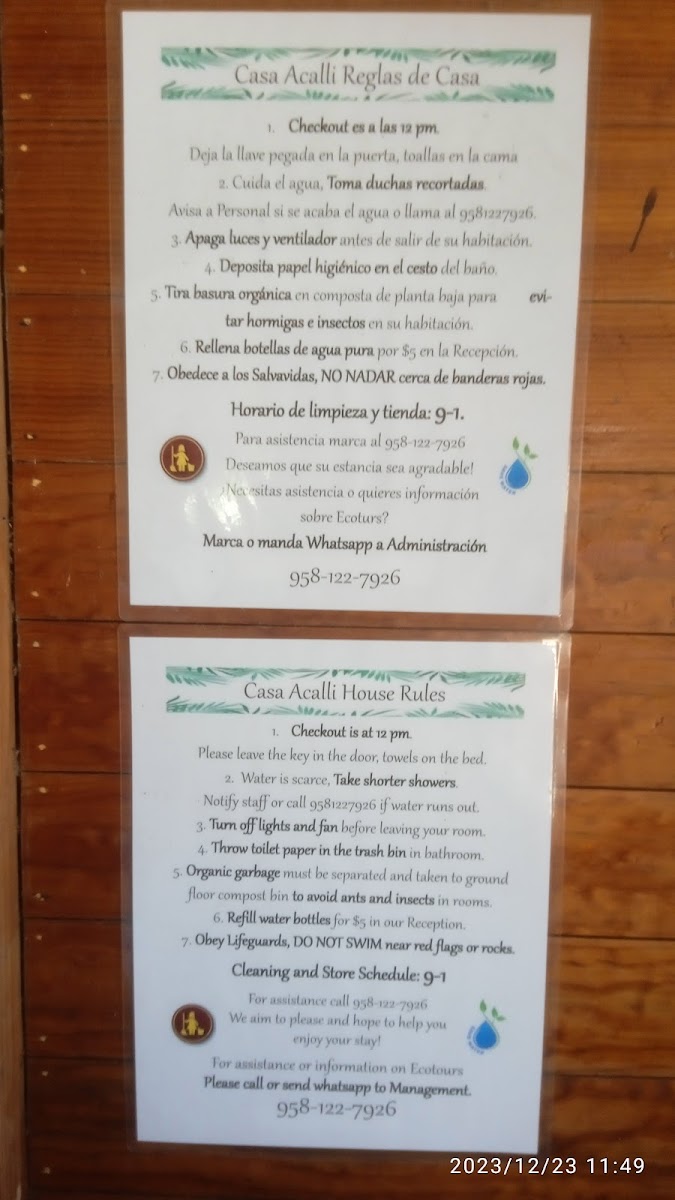 Casa Acalli Reglas de Casa
1. Checkout es a las 12 pm.
Deja la llave pegada en la puerta, toallas en la cama
2. Cuida el agua, Toma duchas recortadas.
Avisa a Personal si se acaba el agua o llama al 9581227926.
3. Apaga luces y ventilador antes de salir de su habitación.
4. Deposita papel higiénico en el cesto del baño.
5. Tira basura orgánica en composta de planta baja para evi-
tar hormigas e insectos en su habitación.
6. Rellena botellas de agua pura por $5 en la Recepción.
7. Obedece a los Salvavidas, NO NADAR cerca de banderas rojas.
Horario de limpieza y tienda: 9-1.
Para asistencia marca al 958-122-7926
Deseamos que su estancia sea agradable!
¿Necesitas asistencia o quieres información
sobre Ecoturs?
Marca o manda Whatsapp a Administración
958-122-7926
Casa Acalli House Rules
1. Checkout is at 12 pm.
Please leave the key in the door, towels on the bed.
2. Water is scarce, Take shorter showers.
Notify staff or call 9581227926 if water runs out.
3. Turn off lights and fan before leaving your room.
4. Throw toilet paper in the trash bin in bathroom.
5. Organic garbage must be separated and taken to ground
floor compost bin to avoid ants and insects in rooms.
6. Refill water bottles for $5 in our Reception.
7. Obey Lifeguards, DO NOT SWIM near red flags or rocks.
Cleaning and Store Schedule: 9-1
For assistance call 958-122-7926
We aim to please and hope to help you
enjoy your stay!
For assistance or information on Ecotours
Please call or send whatsapp to Management.
958-122-7926
2023/12/23 11:49